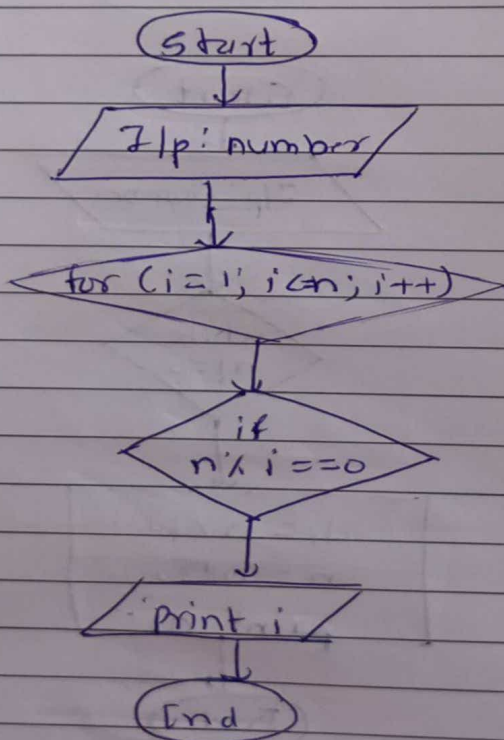 Start
I/p: number
for (i = 1; i<=n; i++)
if
n% i ==0
print i
End